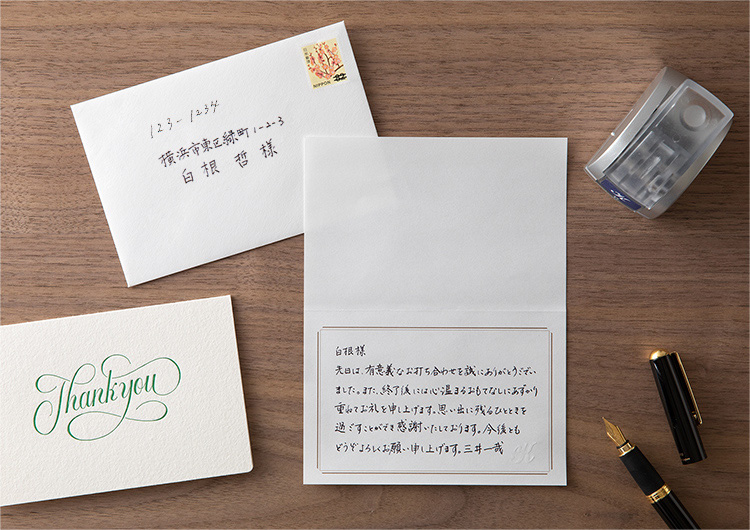 NIPPON
123-1234
横浜市東区緑町1-2-3
白根 哲 様
Thank you
白根様
先日は、有意義なお打ち合わせを誠にありがとうござい
ました。また、終了後には心温まるおもてなしにあずかり
重ねてお礼を申し上げます。思い出に残るひとときを
過ごすことができ感謝いたしております。今後とも
どうぞよろしくお願い申し上げます。三井一哉